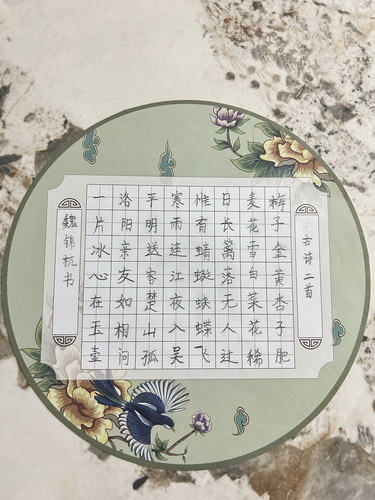 古诗二首
梅子金黄杏子肥
麦花雪白菜花稀
日长篱落无人过
惟有蜻蜓蛱蝶飞
寒雨连江夜入吴
平明送客楚山孤
洛阳亲友如相问
一片冰心在玉壶
魏锦杭书